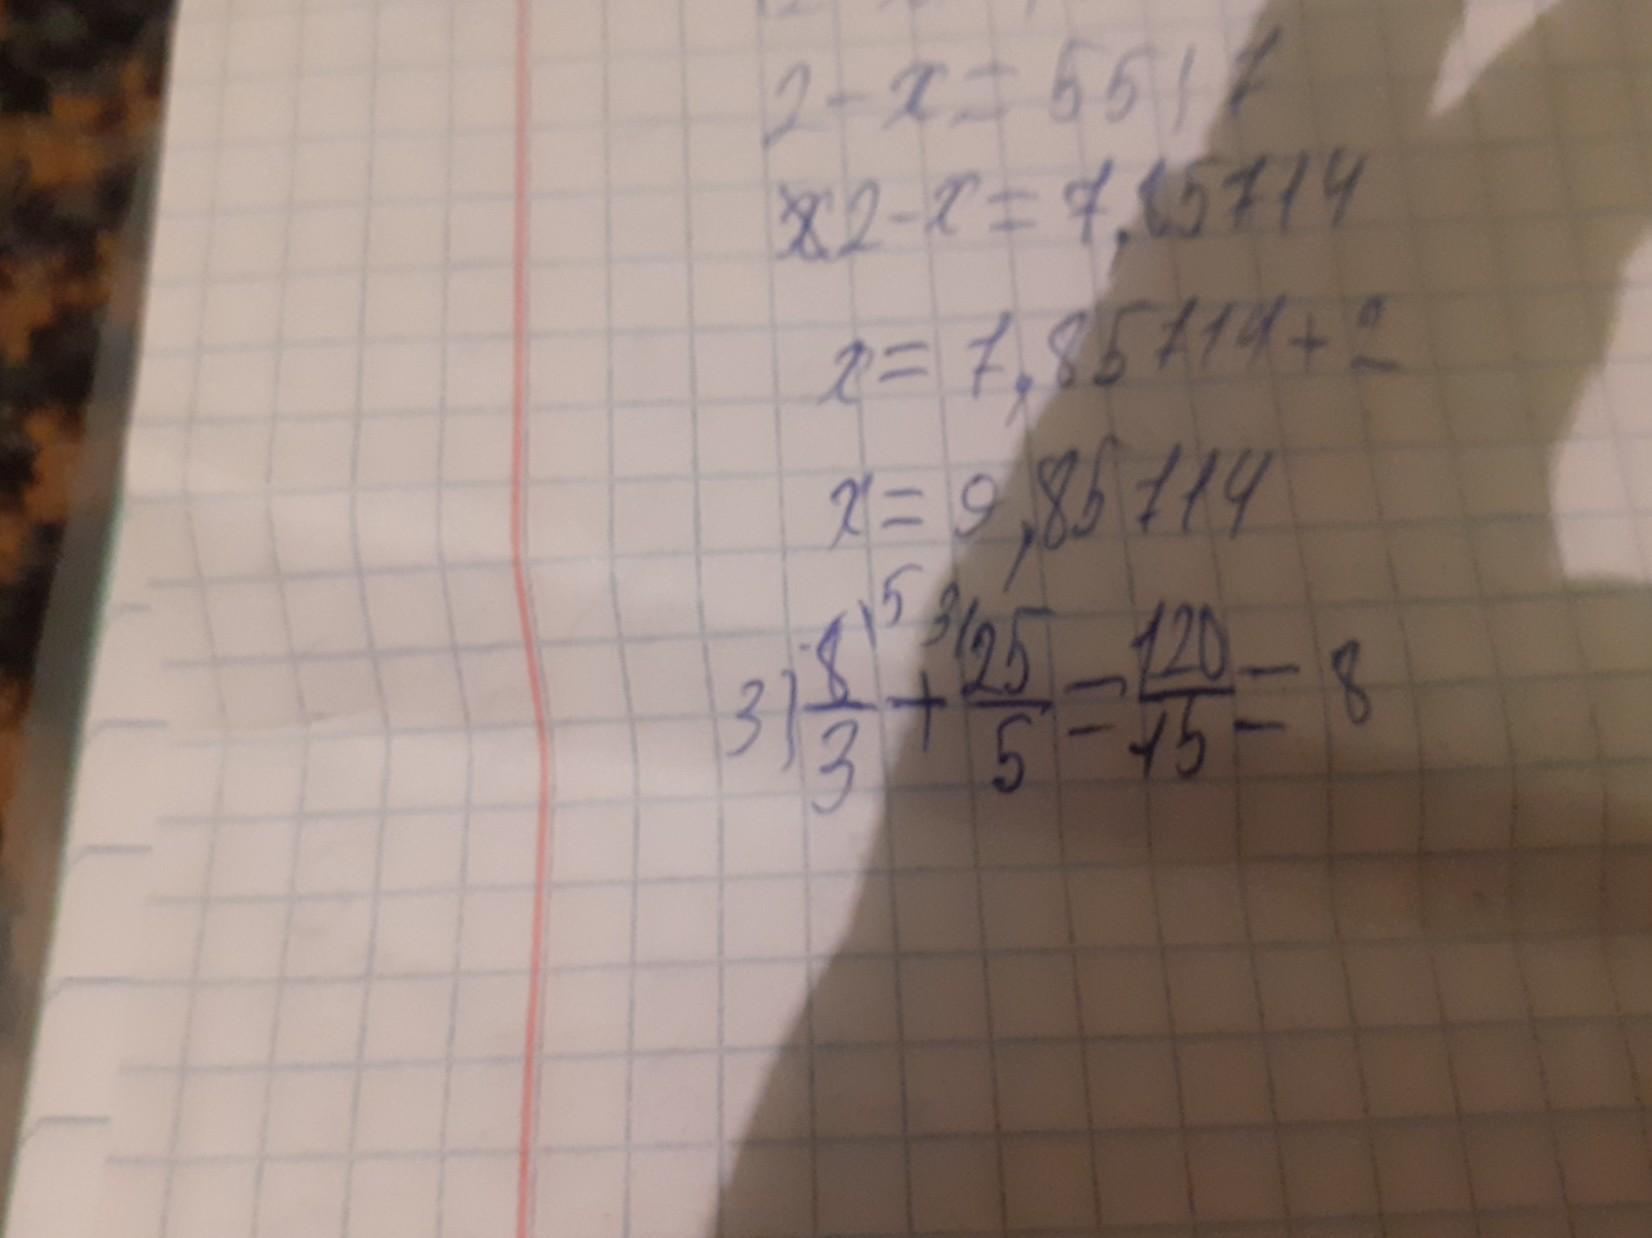 2 - x = 55 | 7
2 - x = 7,85714
x = 7,85714 + 2
x = 9,85714
3) 8\5/3 + 3/25/5 = 120/15 = 8